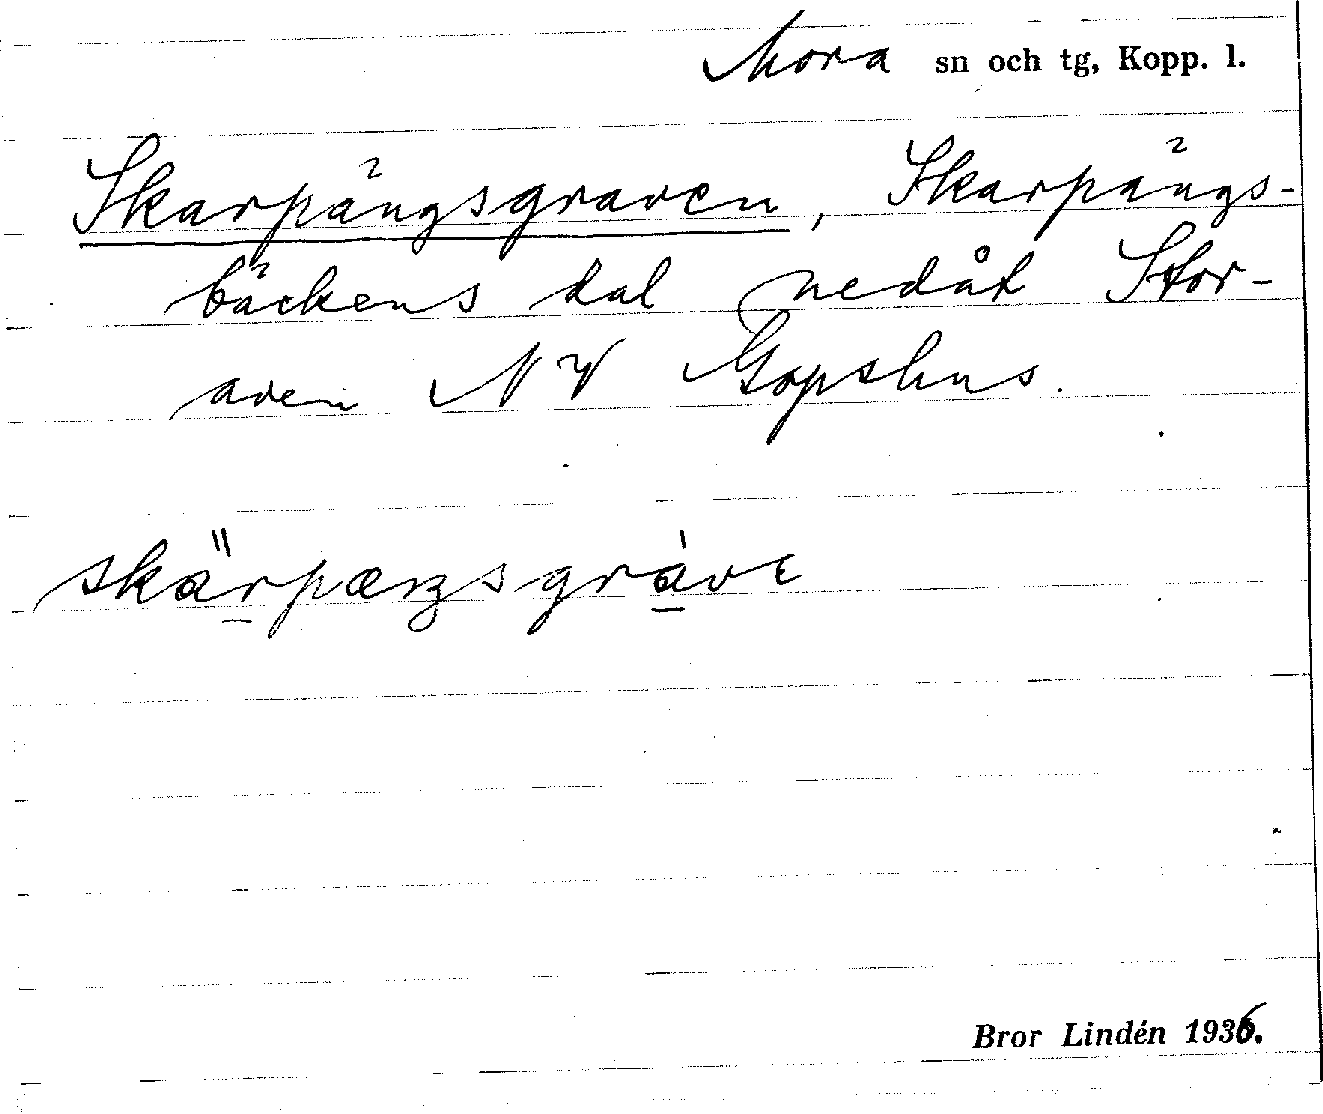 Mora sn och tg, Kopp. l.
Skarpängsgraven, Skarpängs-
bäckens dal nedåt Stor-
aven NV Gopshus.
skärpæŋsgràvɛ
Bror Lindén 1936.